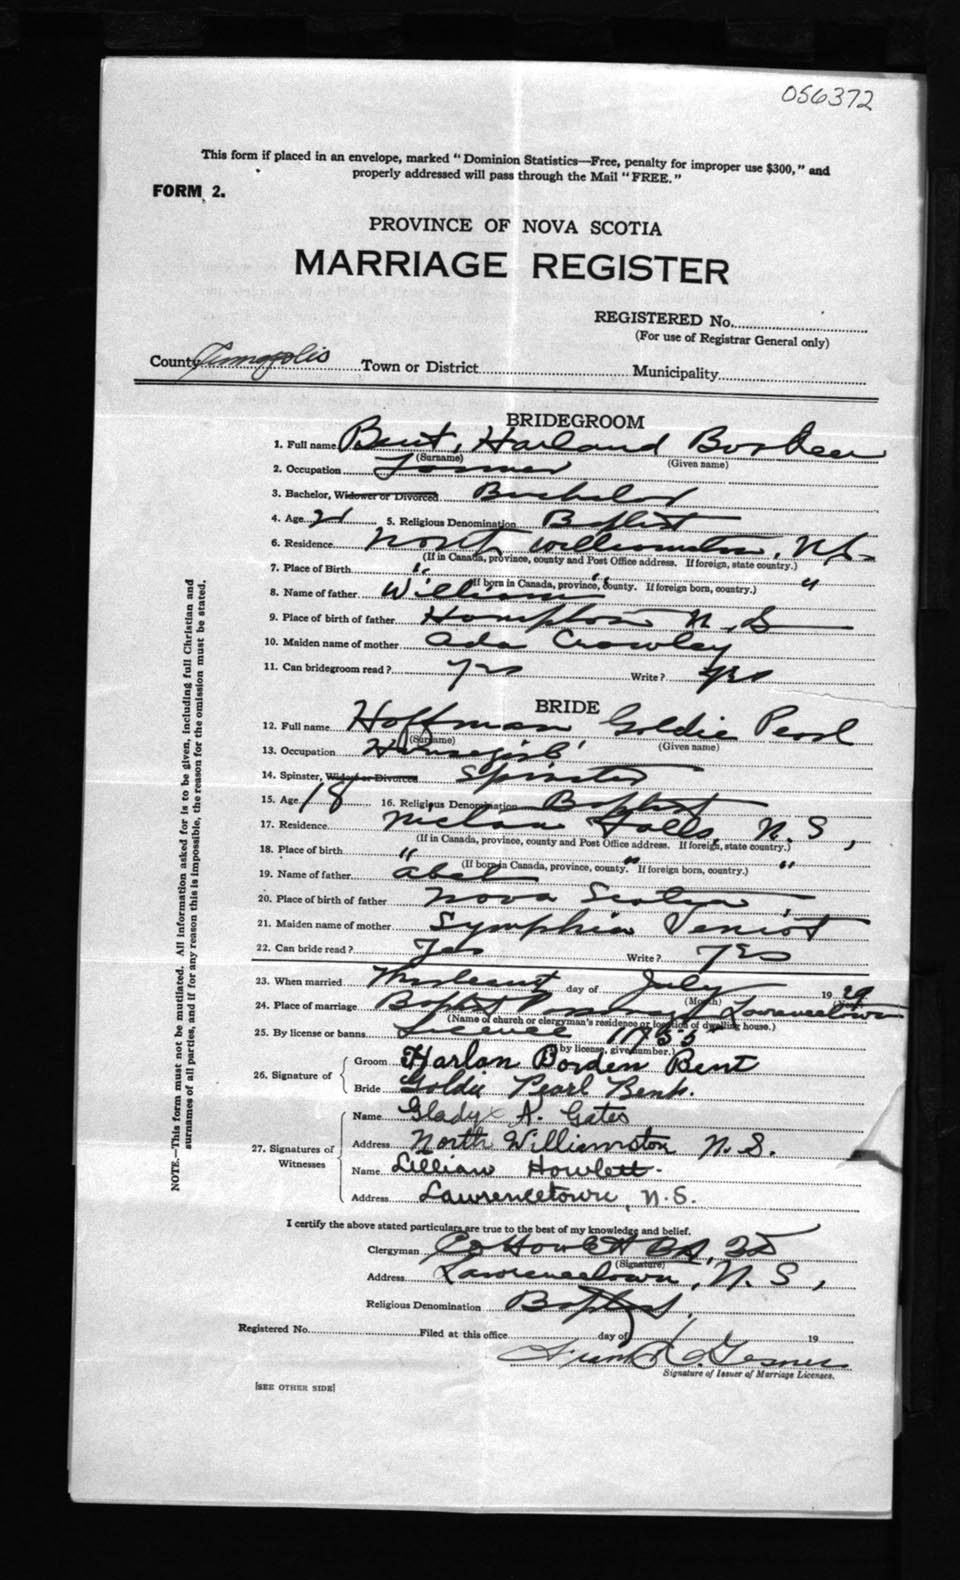 056372
This form if placed in an envelope, marked "Dominion Statistics—Free, penalty for improper use $300," and
properly addressed will pass through the Mail "FREE."
FORM 2.
PROVINCE OF NOVA SCOTIA
MARRIAGE REGISTER
REGISTERED No.
(For use of Registrar General only)
County Annapolis Town or District Municipality
BRIDEGROOM
1. Full name Bent, Harland Borden
(Surname) (Given name)
2. Occupation Farmer
3. Bachelor, Widower or Divorced Bachelor
4. Age 21 5. Religious Denomination Baptist
6. Residence North Williamston, N.S.
(If in Canada, province, county and Post Office address. If foreign, state country.)
7. Place of Birth " " "
(If born in Canada, province, county. If foreign born, country.)
8. Name of father William
9. Place of birth of father Hampton N.S
10. Maiden name of mother Ada Crowley
11. Can bridegroom read? yes Write? yes
BRIDE
12. Full name Hoffman Goldie Pearl
(Surname) (Given name)
13. Occupation Housegirl
14. Spinster, Widow or Divorced Spinster
15. Age 18 16. Religious Denomination Baptist
17. Residence Falls, N.S,
(If in Canada, province, county and Post Office address. If foreign, state country.)
18. Place of birth " " "
(If born in Canada, province, county. If foreign born, country.)
19. Name of father Abel
20. Place of birth of father Nova Scotia
21. Maiden name of mother Symphia Veniot
22. Can bride read? Yes Write? Yes
23. When married day of July 1929
(Month) (Year)
24. Place of marriage Baptist Parsonage Lawrencetown
(Name of church or clergyman's residence or location of dwelling house.)
25. By license or banns License 11755
(If by license, give number.)
26. Signature of Groom Harlan Borden Bent
Bride Goldie Pearl Bent.
27. Signatures of Witnesses Name Gladys A. Gates
Address North Williamston N.S.
Name Lillian Howlett.
Address Lawrencetown, N.S.
I certify the above stated particulars are true to the best of my knowledge and belief.
Clergyman Howlett BA,
(Signature)
Address Lawrencetown, N.S,
Religious Denomination Baptist,
Registered No. Filed at this office day of 19
Frank Gesner
Signature of Issuer of Marriage Licenses.
[SEE OTHER SIDE]
NOTE.—This form must not be mutilated. All information asked for is to be given, including full Christian and
surnames of all parties, and if for any reason this is impossible, the reason for the omission must be stated.